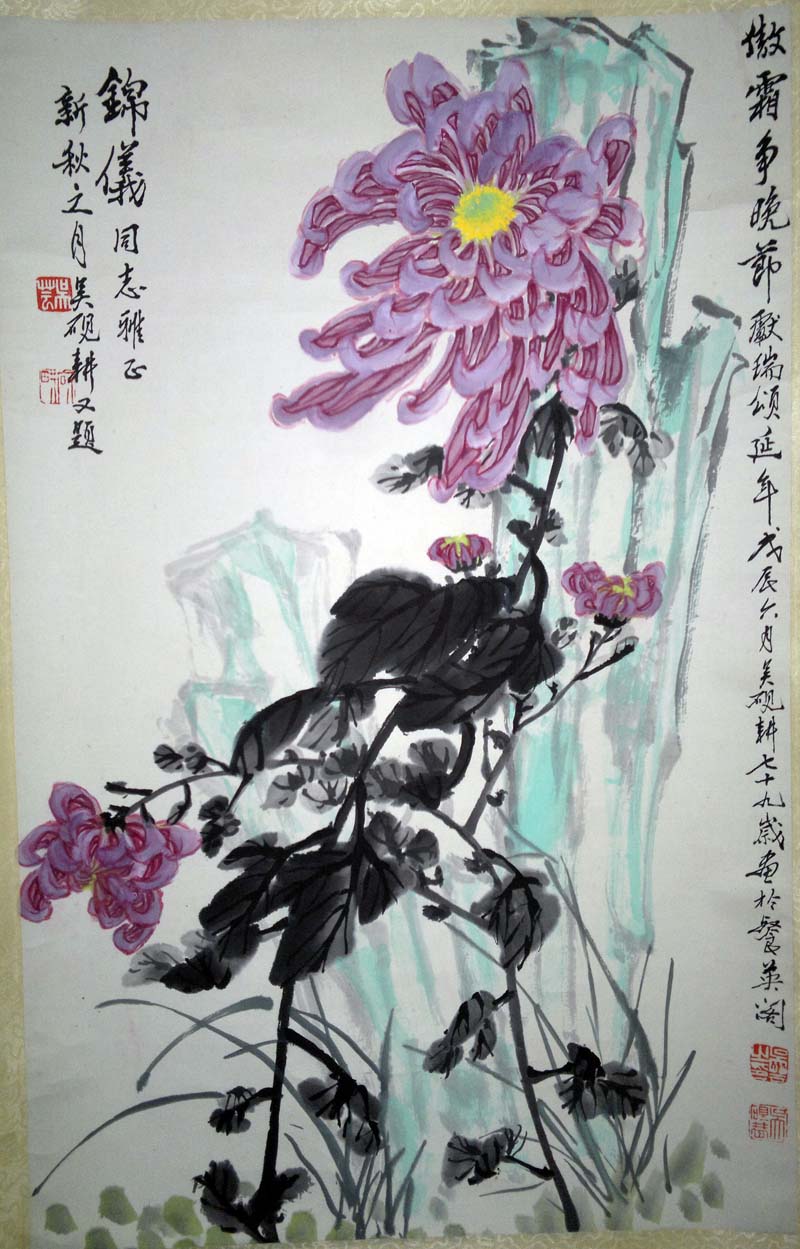 傲霜争晚節獻瑞頌延年戊辰六月吴砚耕七十九歲画於餐英阁
錦儀同志雅正
新秋之月吴砚耕又題